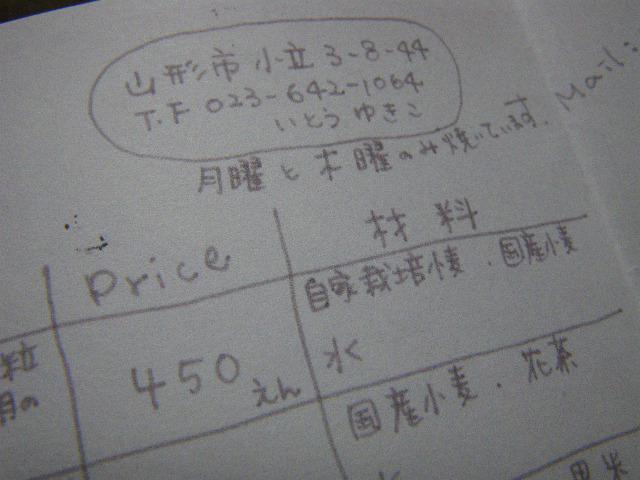 山形市小立3-8-44
T.F 023-642-1064
いとう ゆきこ
月曜と木曜のみ焼いています. Mail:
Price 材料
自家栽培小麦.国産小麦
水
粒
月の
450えん
国産小麦.